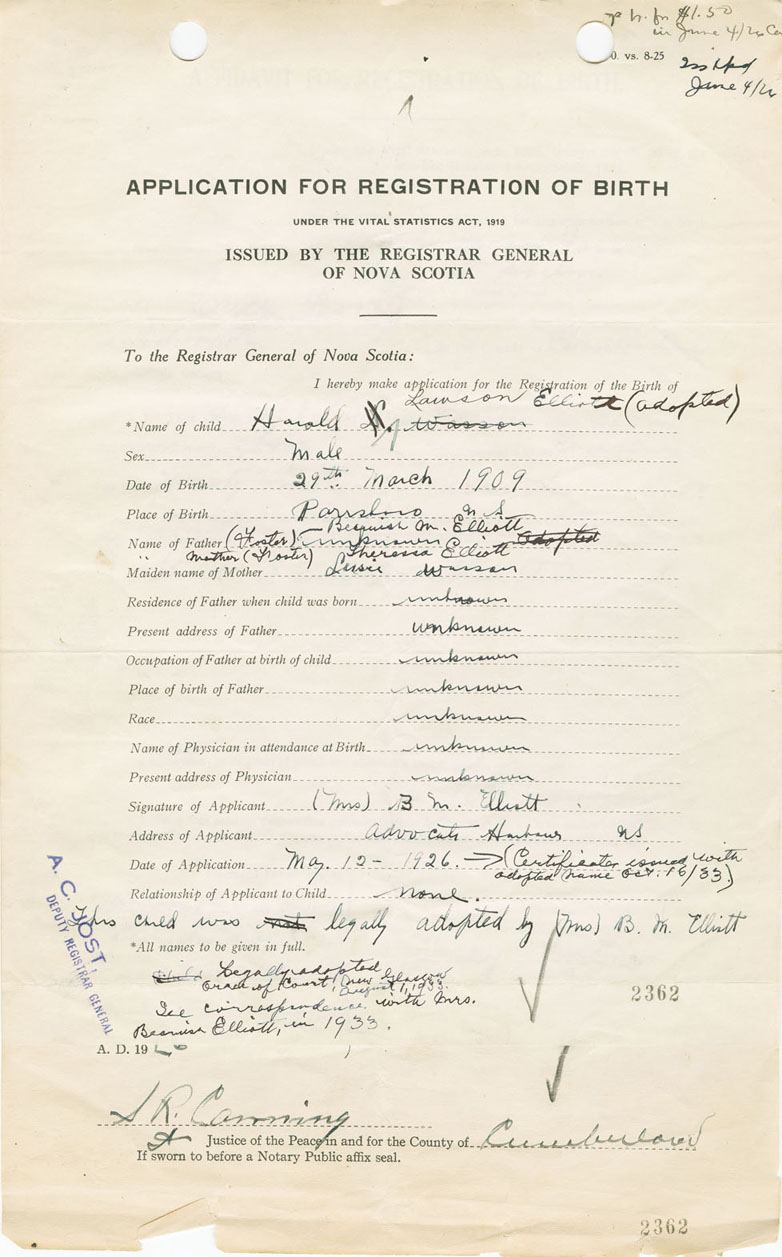 $1.50
in June 4/26
vs. 8-25
June 4/26
APPLICATION FOR REGISTRATION OF BIRTH
UNDER THE VITAL STATISTICS ACT, 1919
ISSUED BY THE REGISTRAR GENERAL
OF NOVA SCOTIA
To the Registrar General of Nova Scotia:
I hereby make application for the Registration of the Birth of
Lawson Elliott (adopted)
*Name of child Harold Wasson
Sex Male
Date of Birth 29th March 1909
Place of Birth Parrsboro N S
M. Elliott
Name of Father (Foster) unknown adopted
" Mother (Foster) Theressa Elliott
Maiden name of Mother Wasson
Residence of Father when child was born unknown
Present address of Father unknown
Occupation of Father at birth of child unknown
Place of birth of Father unknown
Race unknown
Name of Physician in attendance at Birth unknown
Present address of Physician unknown
Signature of Applicant (Mrs) B M. Elliott
Address of Applicant Advocate Harbour NS
Date of Application May 12 - 1926. → (Certificate issued with
adopted name Oct. 16/33)
Relationship of Applicant to Child none.
This child was not legally adopted by (Mrs) B. M. Elliott
*All names to be given in full.
Legally adopted
of Court, New Glasgow
August 1, 1933.
See correspondence with Mrs.
Elliott, in 1933.
A. C. JOST,
DEPUTY REGISTRAR GENERAL
2362
A. D. 19
S R. Canning
A Justice of the Peace in and for the County of Cumberland
If sworn to before a Notary Public affix seal.
2362